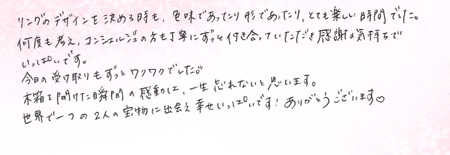 リングのデザインを決める時も、色味であったり形であったり、とても楽しい時間でした。
何度も考え、コンシェルジュの方も丁寧にずっと付き合っていただき感謝の気持ちで
いっぱいです。
今日の受け取りもずっとワクワクでした。
木箱を開けた瞬間の感動は、一生忘れないと思います。
世界で一つの2人の宝物に出会え幸せいっぱいです！ありがとうございます♡